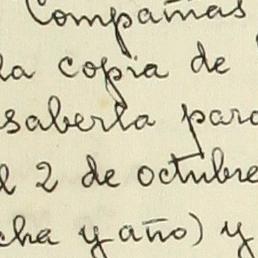 Compañias
la copia de
saberla para
l 2 de octubre
cha y año) y